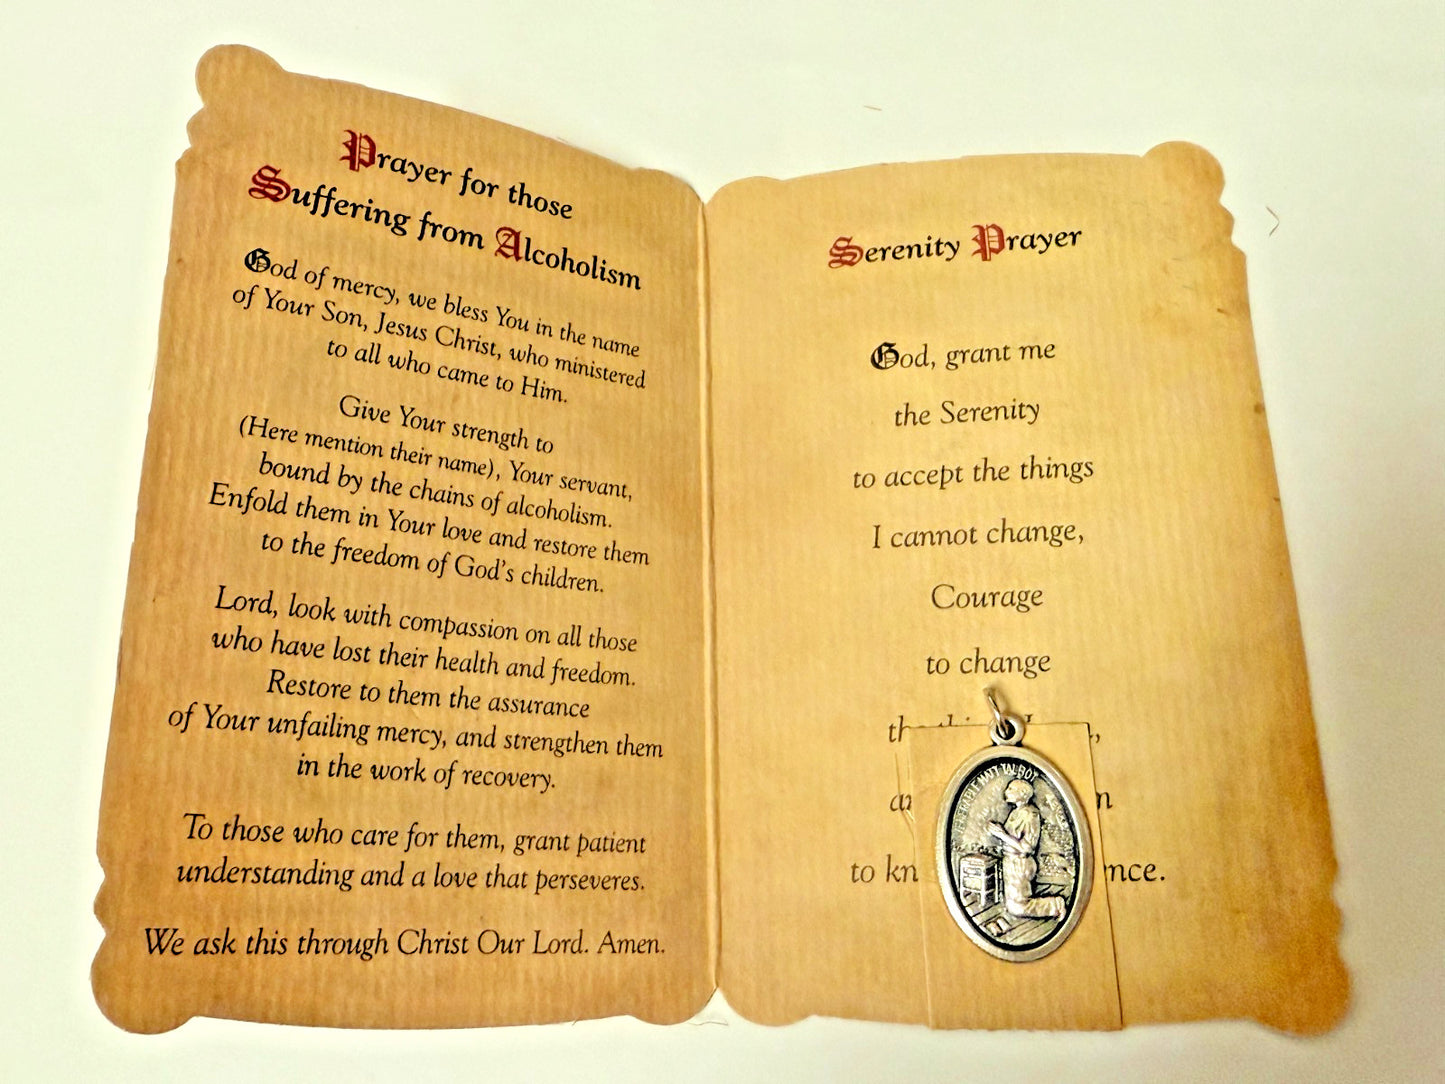 Prayer for those
Suffering from Alcoholism
God of mercy, we bless You in the name
of Your Son, Jesus Christ, who ministered
to all who came to Him.
Give Your strength to
(Here mention their name), Your servant,
bound by the chains of alcoholism.
Enfold them in Your love and restore them
to the freedom of God's children.
Lord, look with compassion on all those
who have lost their health and freedom.
Restore to them the assurance
of Your unfailing mercy, and strengthen them
in the work of recovery.
To those who care for them, grant patient
understanding and a love that perseveres.
We ask this through Christ Our Lord. Amen.
Serenity Prayer
God, grant me
the Serenity
to accept the things
I cannot change,
Courage
to change
to
MATT TALBOT